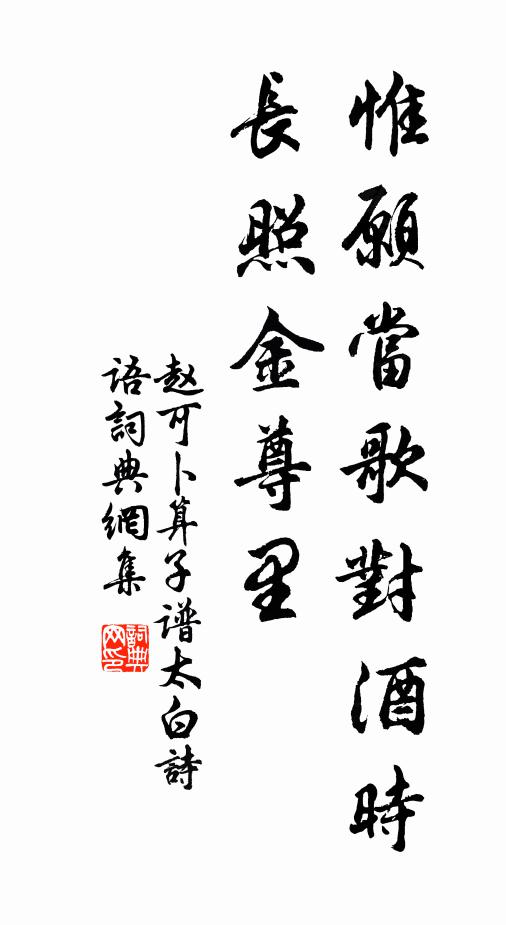 惟願當歌對酒時
長照金尊里
赵可卜算子谱太白詩
语詞典網集
詞典
网印